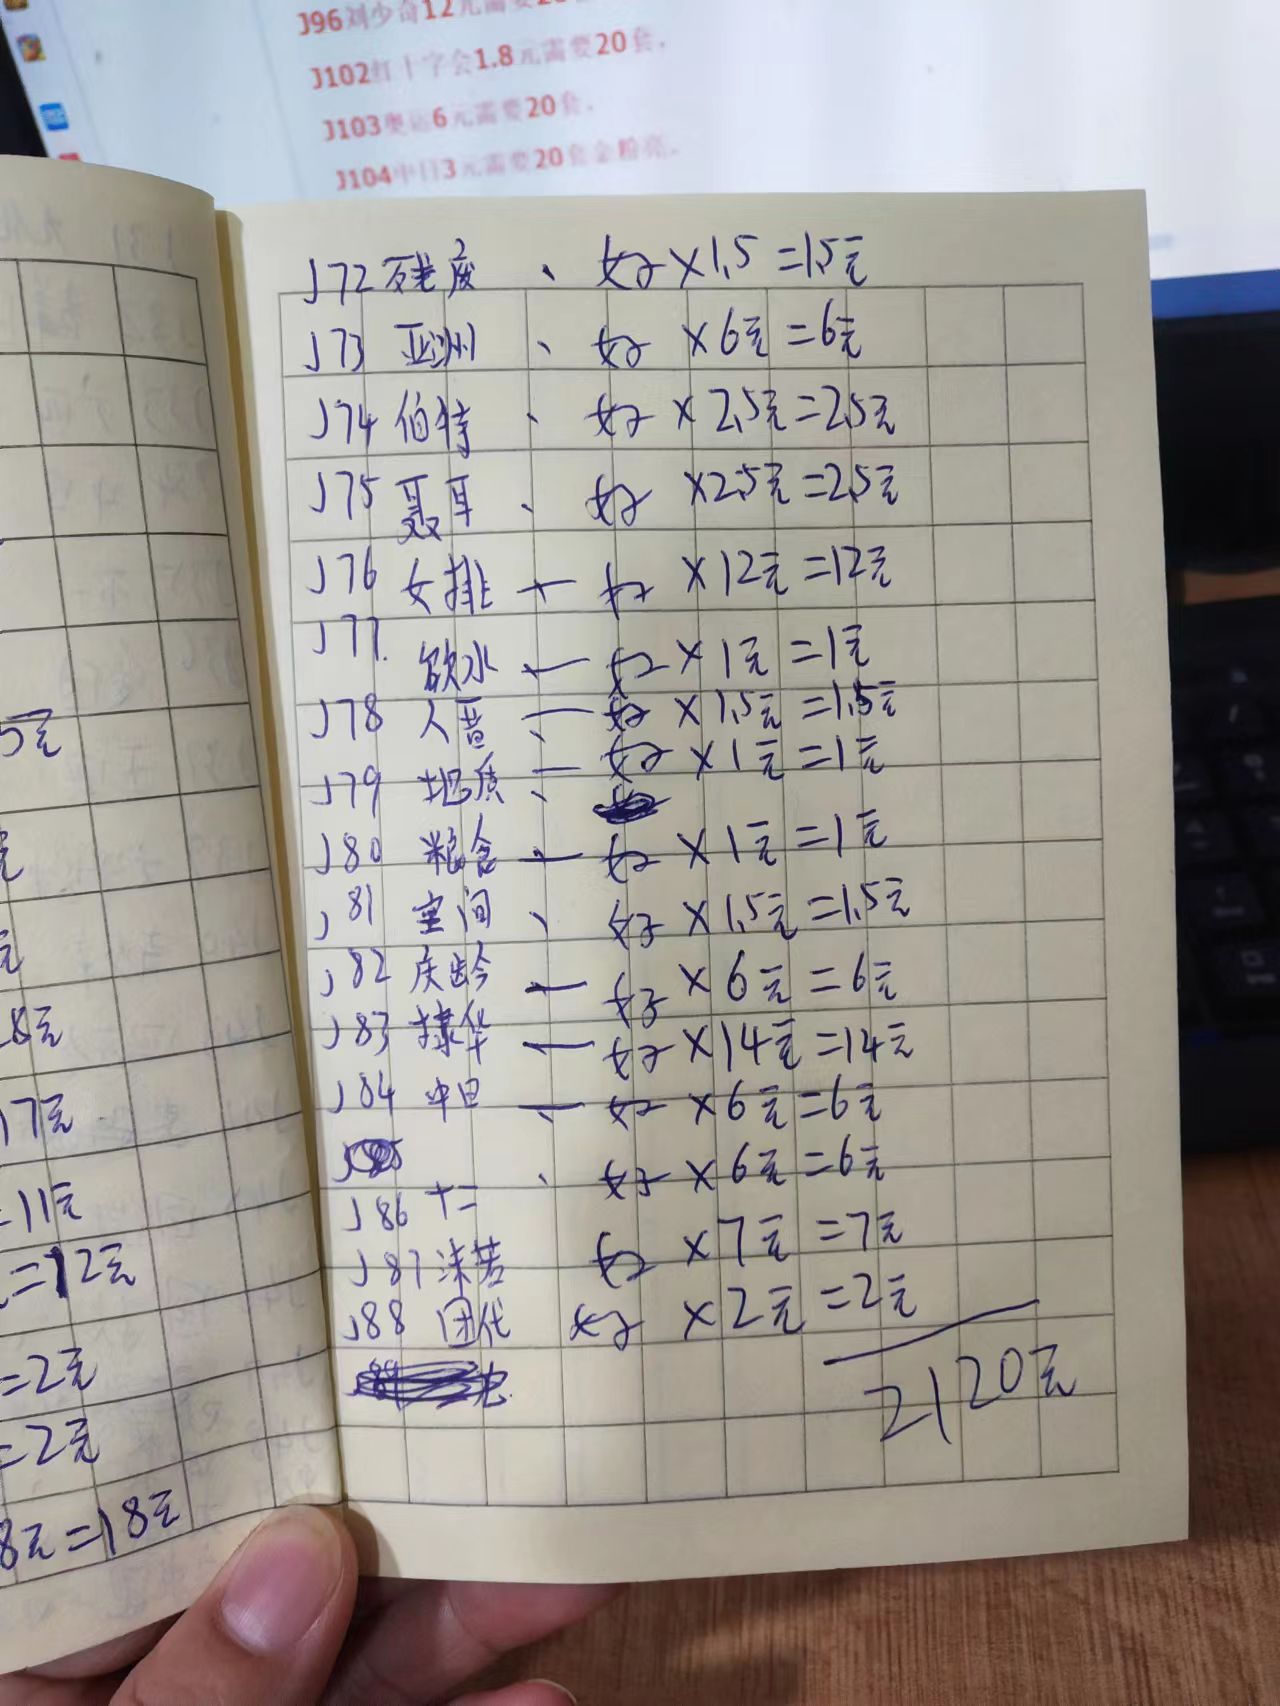 J96刘少奇12元需要20
J102红十字会1.8元需要20套。
J103奥运6元需要20套。
J104中日3元需要20套金粉亮。
J72 残废 、 好×1.5=1.5元
J73 亚洲 、 好 ×6元=6元
J74 伯特 、 好 ×2.5元=2.5元
J75 聂耳 、 好 ×2.5元=2.5元
J76 女排 一 好 ×12元=12元
J77. 饮水 一 好 ×1元=1元
J78 人普 一 好 ×1.5元=1.5元
J79 地质 一 好 ×1元=1元
J80 粮食 一 好 ×1元=1元
J81 空间 、 好 ×1.5元=1.5元
J82 庆龄 一 好 ×6元=6元
J83 棣华 一 好 ×14元=14元
J84 中日 一 好 ×6元=6元
J86 十二 、 好 ×6元=6元
J87 沫若 好 ×7元=7元
J88 团代 好 ×2元=2元
2120元
5元
元
元
8元
17元
=11元
=12元
=2元
=2元
8元=18元